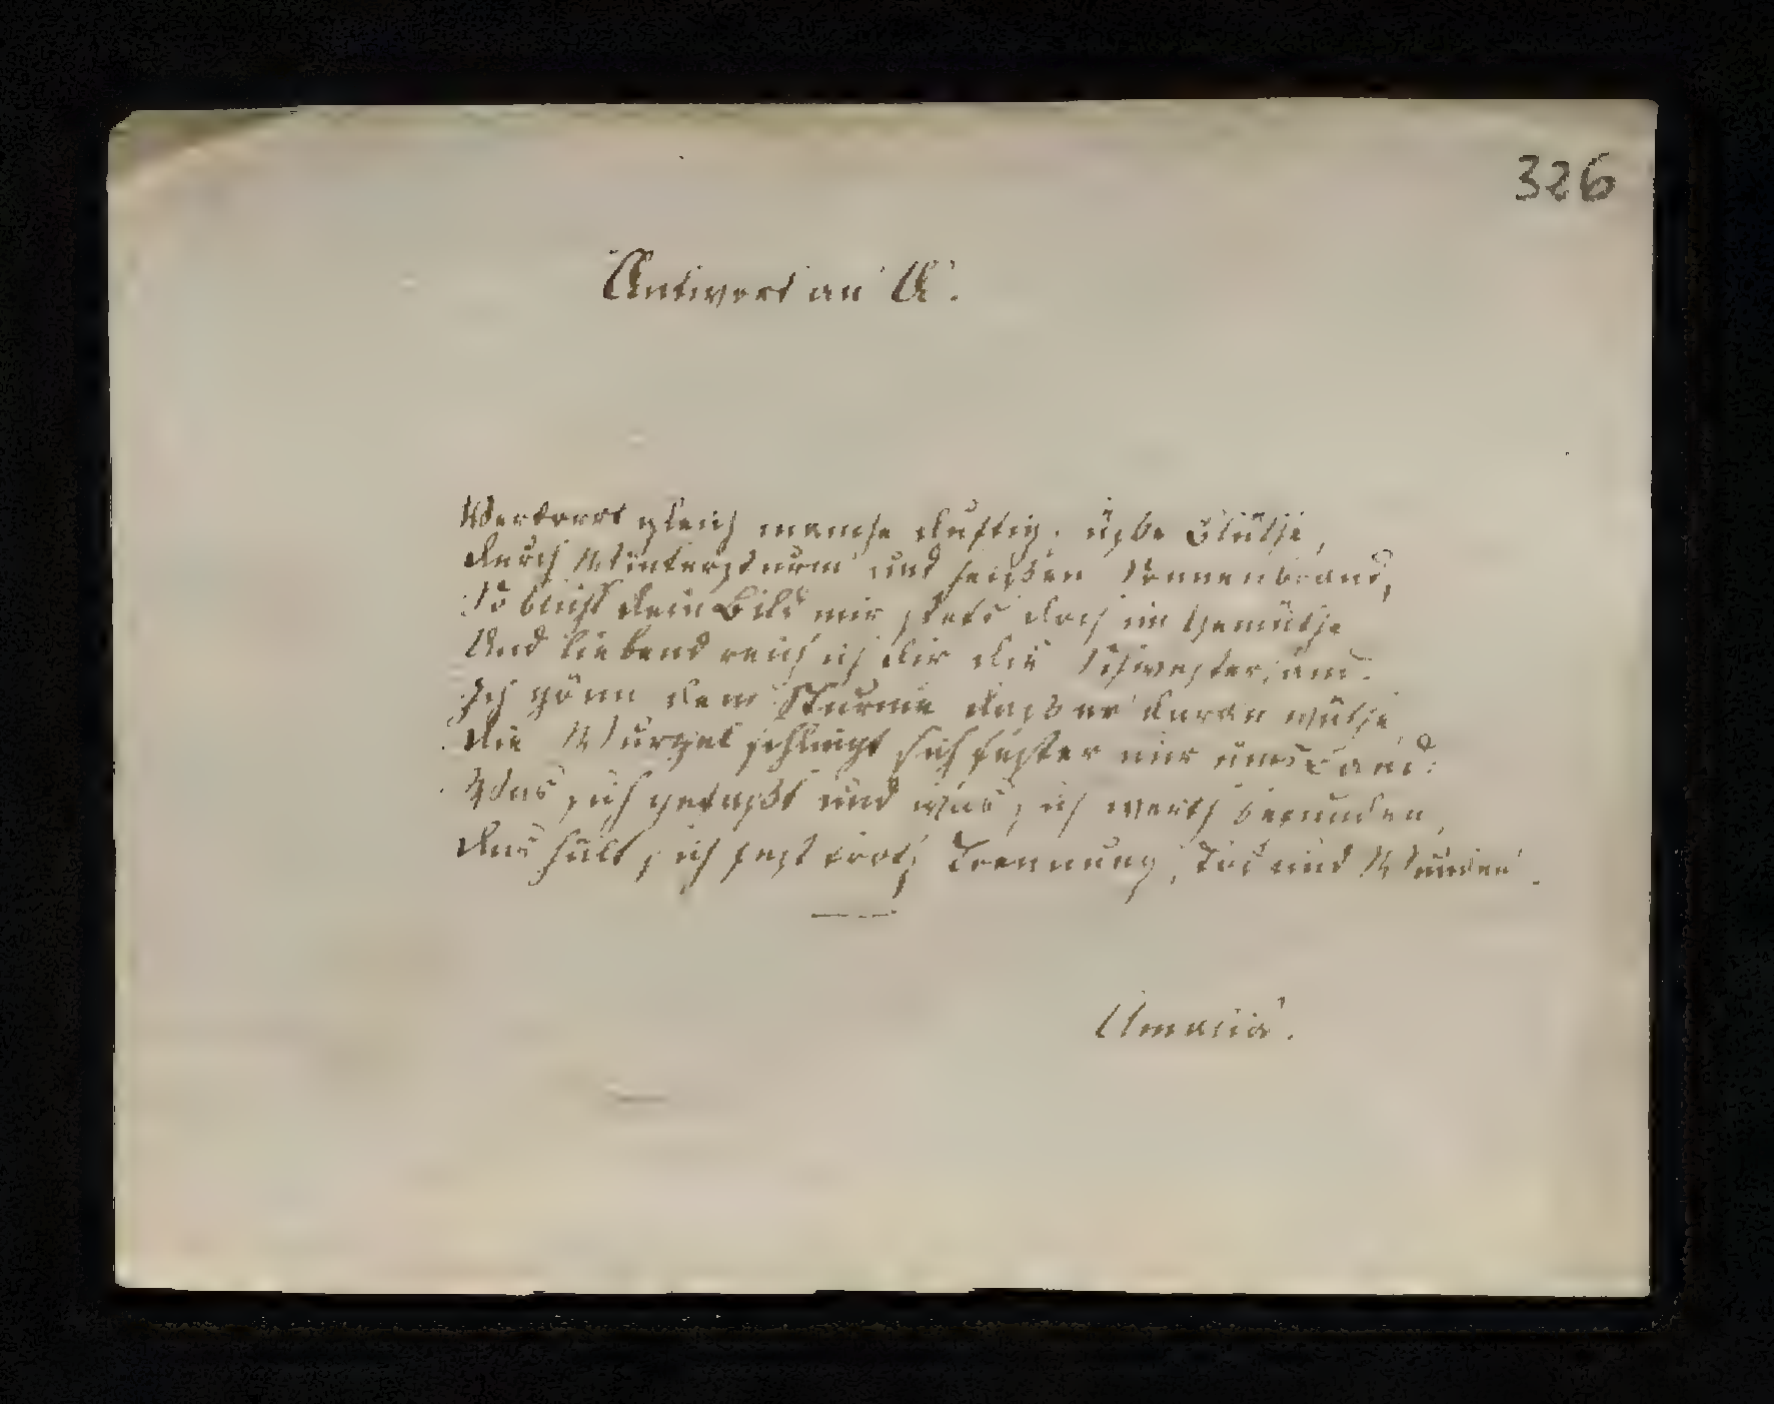 326
Antwort an A.
Verdorrt gleich manche duftig. süße Blüthe,
durch Wintersturm und heißen Sonnenbrand,
So blüht dein Bild mir stets doch im Gemüthe
Und liebend reich' ich dir die Schwesterhand.
Ich gönn dem Sturme daß er daran wüthe,
die Wurzel schlingt sich fester nur ums Band:
Was sich gefaßt und was sich werth befunden,
das hält sich fest trotz Trennung, Tod und Wunden.
Amalia.